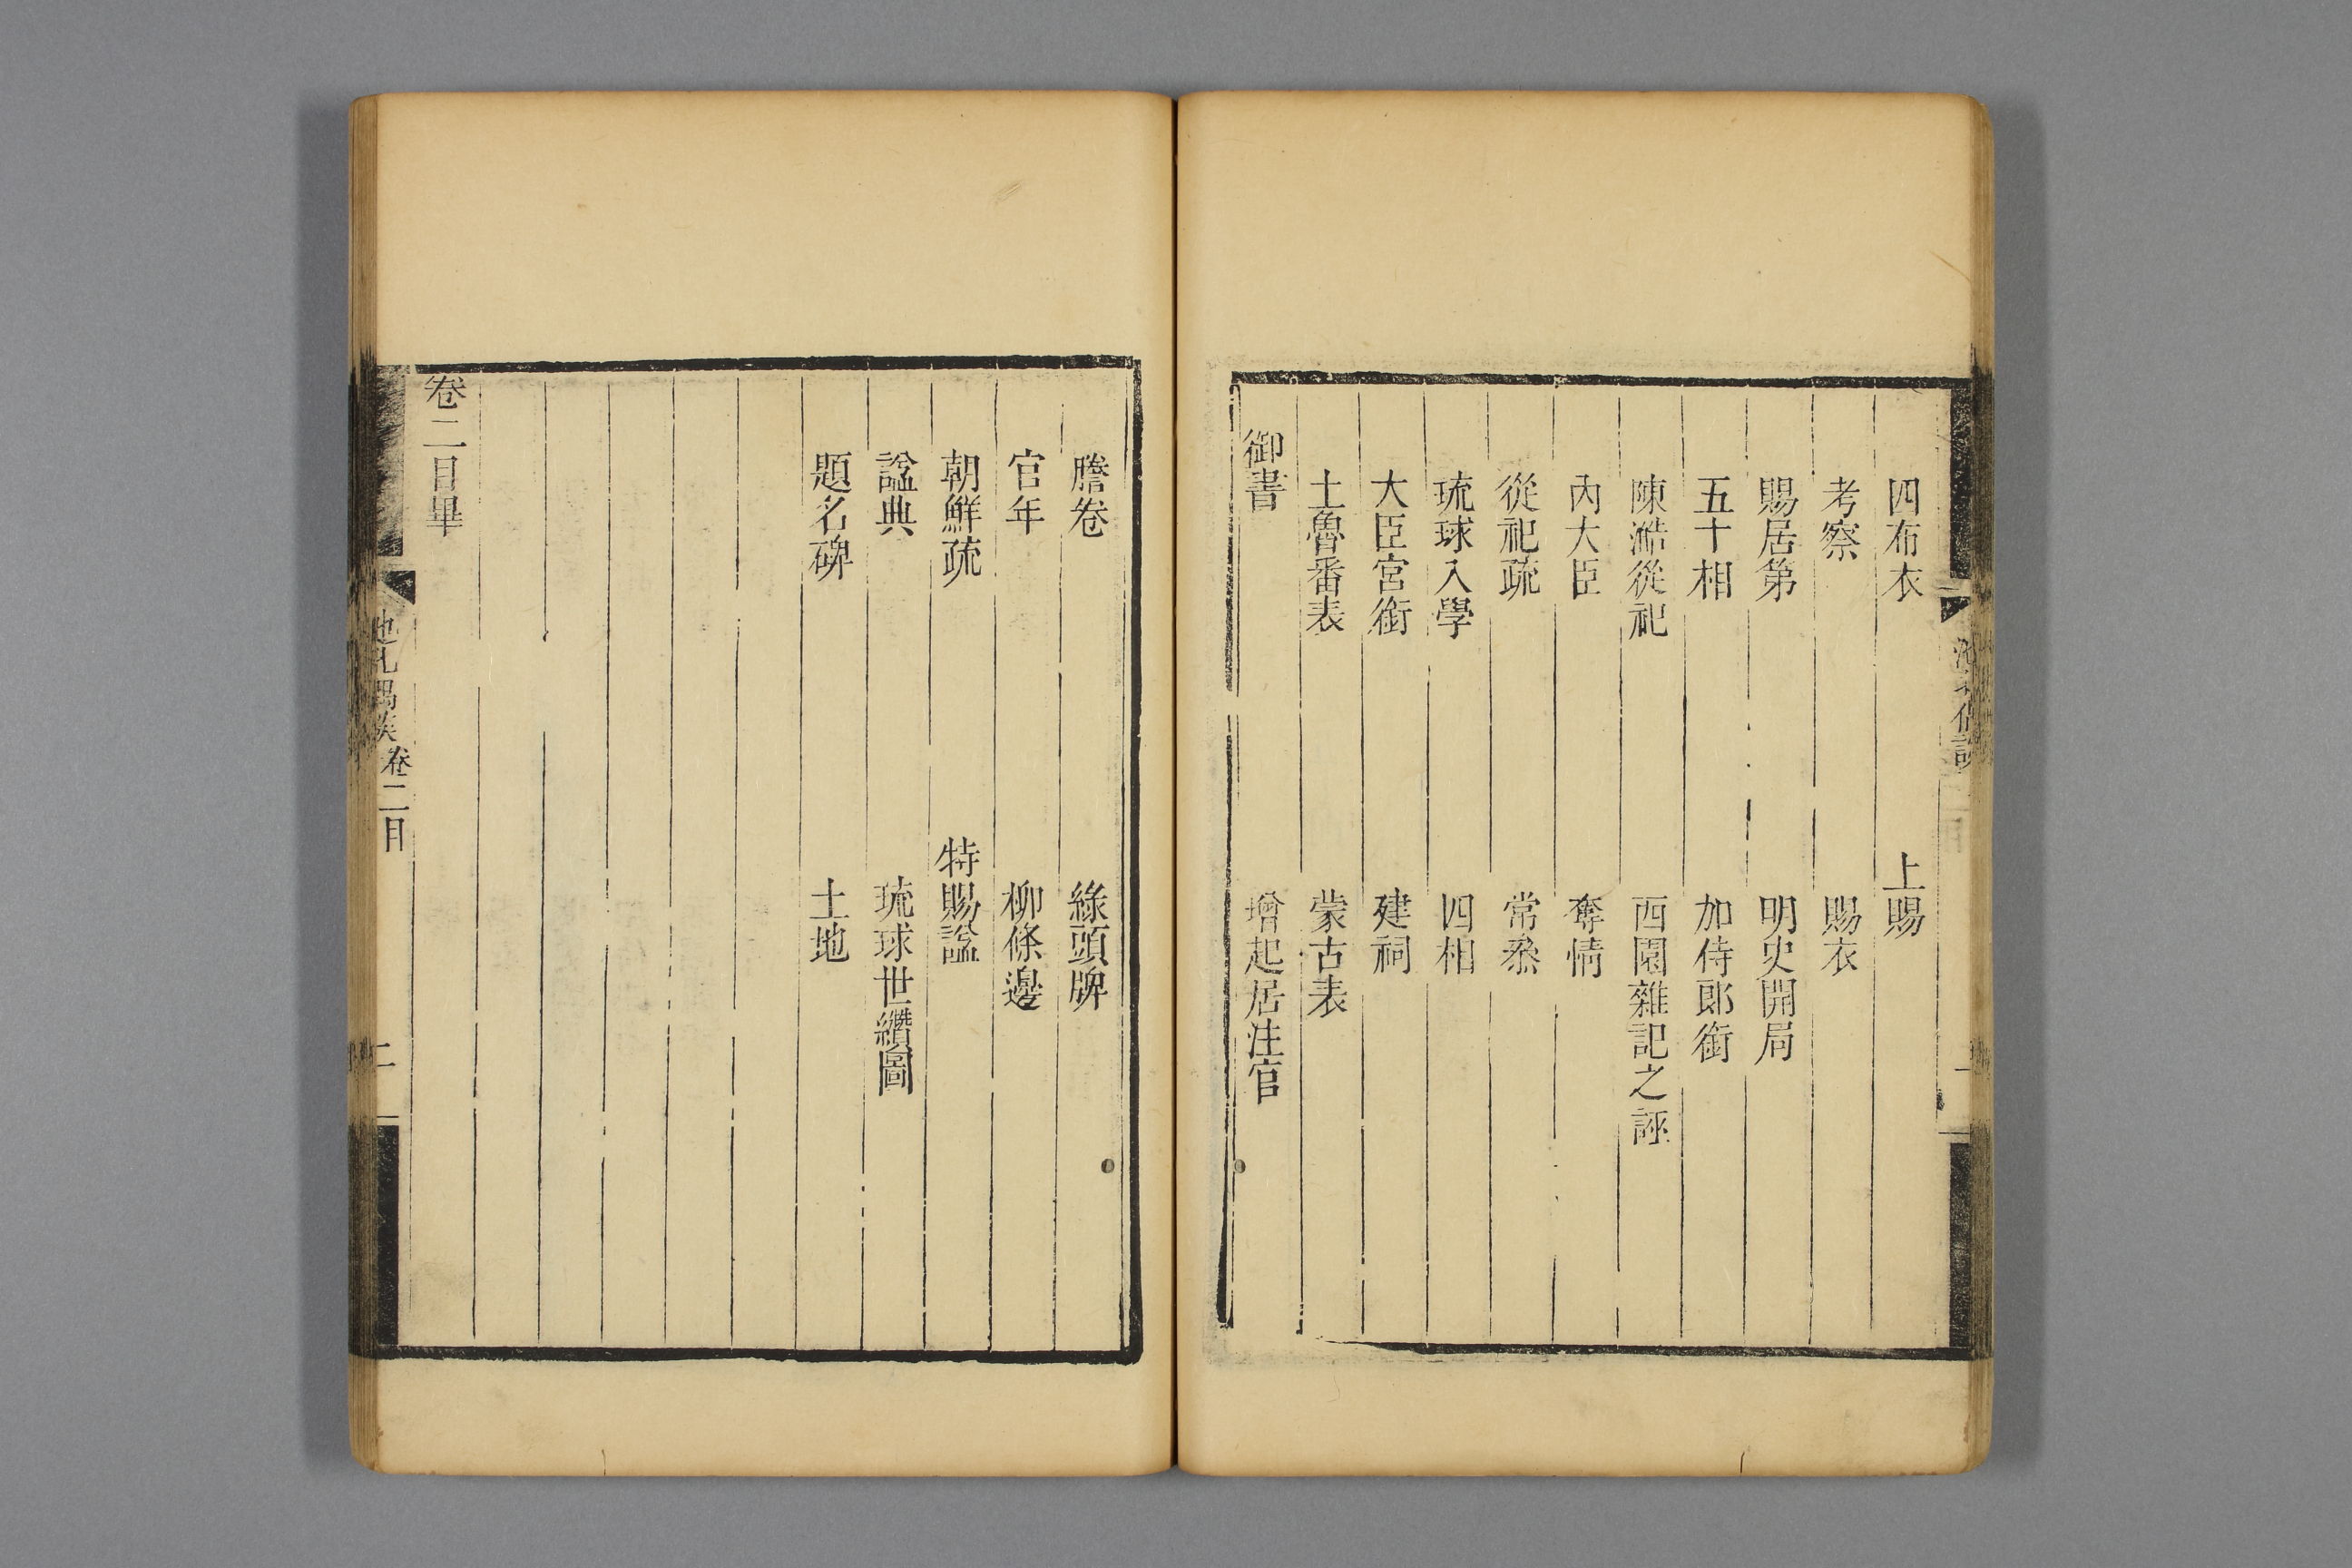 四布衣 上賜
考察 賜衣
賜居第 明史開局
五十相 加侍郎銜
陳澔從祀 西園雜記之誣
內大臣 奪情
從祀疏 常叅
琉球入學 四相
大臣宮銜 建祠
土魯番表 蒙古表
御書 增起居注官
謄卷 綠頭牌
官年 柳條邊
朝鮮疏 特賜諡
諡典 琉球世纘圖
題名碑 土地
卷二目畢
卷二目
二